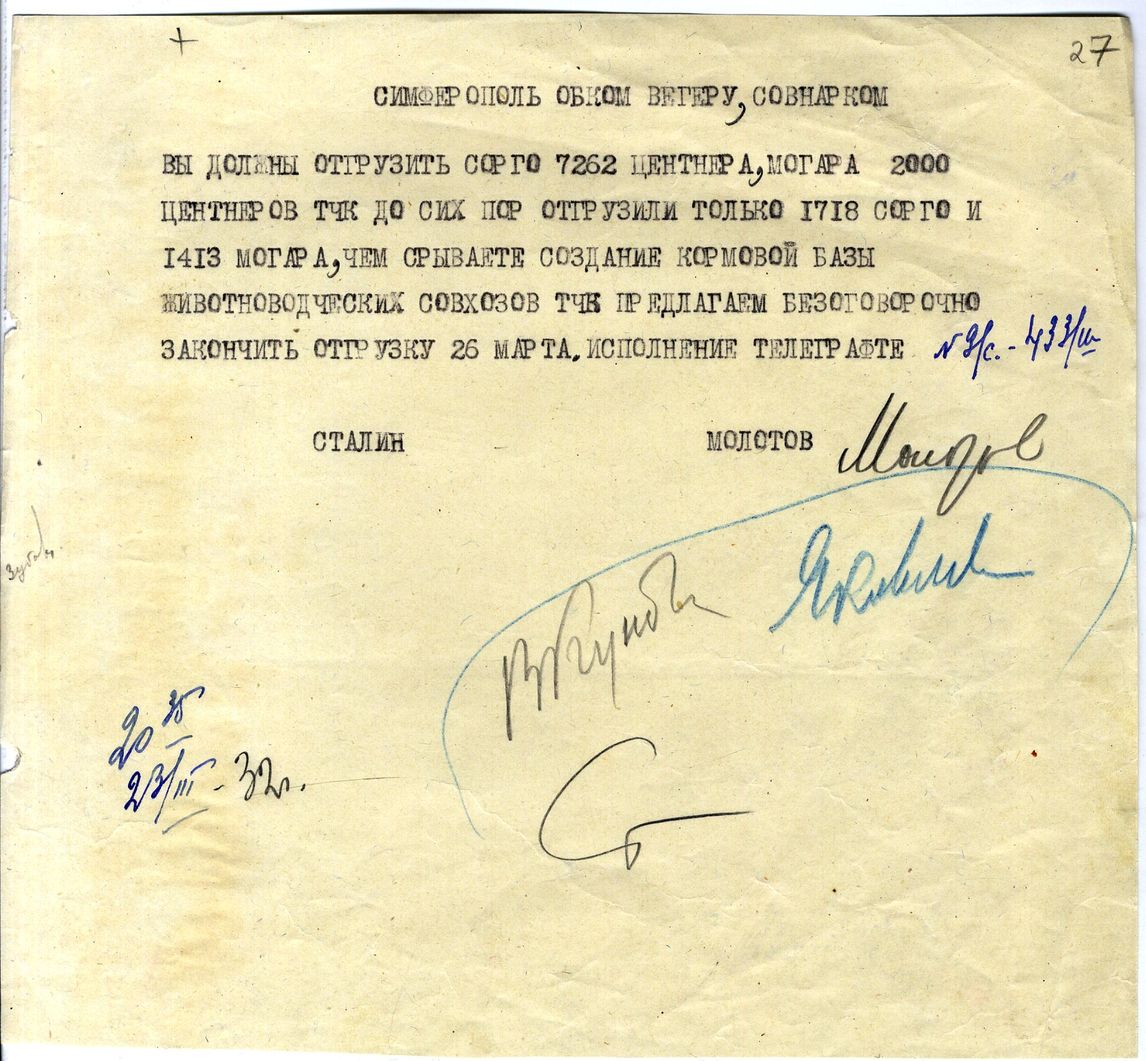 +
27
СИМФЕРОПОЛЬ ОБКОМ ВЕГЕРУ, СОВНАРКОМ
ВЫ ДОЛЖНЫ ОТГРУЗИТЬ СОРГО 7262 ЦЕНТНЕРА, МОГАРА 2000
ЦЕНТНЕРОВ ТЧК ДО СИХ ПОР ОТГРУЗИЛИ ТОЛЬКО 1718 СОРГО И
1413 МОГАРА, ЧЕМ СРЫВАЕТЕ СОЗДАНИЕ КОРМОВОЙ БАЗЫ
ЖИВОТНОВОДЧЕСКИХ СОВХОЗОВ ТЧК ПРЕДЛАГАЕМ БЕЗОГОВОРОЧНО
ЗАКОНЧИТЬ ОТГРУЗКУ 26 МАРТА. ИСПОЛНЕНИЕ ТЕЛЕГРАФТЕ
СТАЛИН МОЛОТОВ Молотов
Яковлев
23/III - 32г.